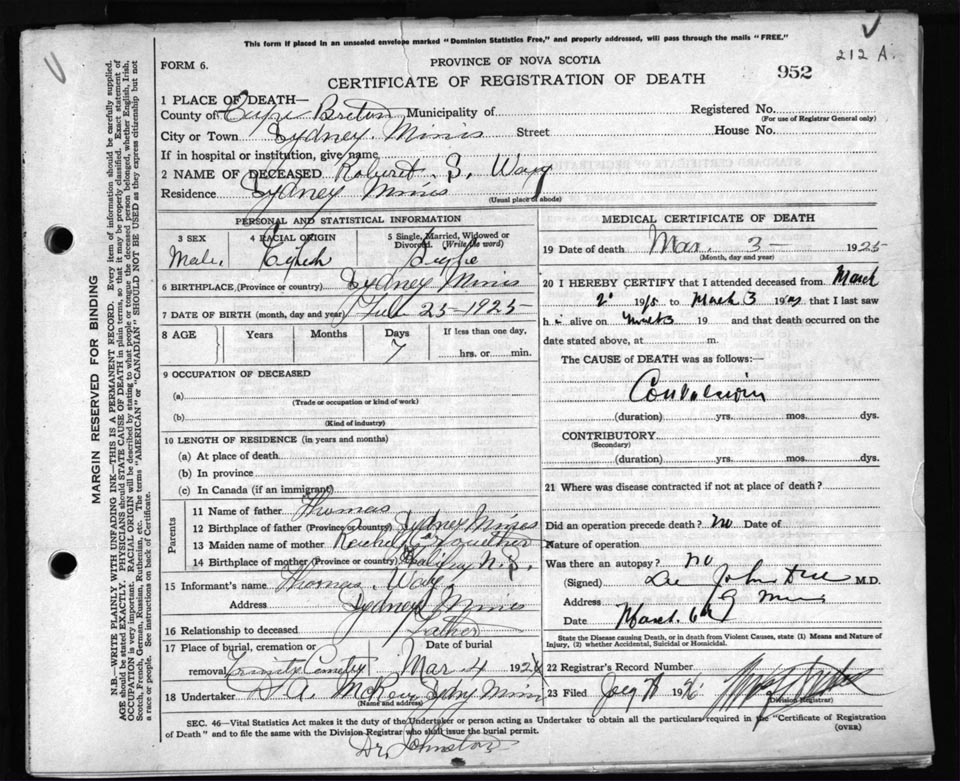 This form if placed in an unsealed envelope marked "Dominion Statistics Free," and properly addressed, will pass through the mails "FREE."
212 A.
FORM 6.
PROVINCE OF NOVA SCOTIA
CERTIFICATE OF REGISTRATION OF DEATH
952
1 PLACE OF DEATH—
County of Cape Breton Municipality of
Registered No.
(For use of Registrar General only)
City or Town Sydney Mines Street House No.
If in hospital or institution, give name
2 NAME OF DECEASED Robert S. Way
Residence Sydney Mines
(Usual place of abode)
PERSONAL AND STATISTICAL INFORMATION
3 SEX
4 RACIAL ORIGIN
5 Single, Married, Widowed or Divorced. (Write the word)
Male. English Single
6 BIRTHPLACE, (Province or country) Sydney Mines
7 DATE OF BIRTH (month, day and year) Feb 25-1925
8 AGE
Years
Months
Days
If less than one day,
7
hrs. or min.
9 OCCUPATION OF DECEASED
(a)
(Trade or occupation or kind of work)
(b)
(Kind of industry)
10 LENGTH OF RESIDENCE (in years and months)
(a) At place of death
(b) In province
(c) In Canada (if an immigrant)
Parents
11 Name of father Thomas
12 Birthplace of father (Province or Country) Sydney Mines
13 Maiden name of mother
14 Birthplace of mother (Province or country) Halifax N.S.
15 Informant's name Thomas Way
Address Sydney Mines
16 Relationship to deceased Father
17 Place of burial, cremation or removal Trinity Cemetery
Date of burial Mar 4 192
18 Undertaker
(Name and address)
MEDICAL CERTIFICATE OF DEATH
19 Date of death Mar. 3- 1925
(Month, day and year)
20 I HEREBY CERTIFY that I attended deceased from March
2 19 to March 3 19 that I last saw
h alive on 19 and that death occurred on
date stated above, at m.
The CAUSE of DEATH was as follows:—
Convulsion
(duration) yrs. mos. dys.
CONTRIBUTORY
(Secondary)
(duration) yrs. mos. dys.
21 Where was disease contracted if not at place of death?
Did an operation precede death? no Date of
Nature of operation
Was there an autopsy? no
(Signed) M.D.
Address
Date March 6
State the Disease causing Death, or in death from Violent Causes, state (1) Means and Nature of Injury, (2) whether Accidental, Suicidal or Homicidal.
22 Registrar's Record Number
23 Filed
Division Registrar)
SEC. 46—Vital Statistics Act makes it the duty of the Undertaker or person acting as Undertaker to obtain all the particulars required in the "Certificate of Registration
of Death" and to file the same with the Division Registrar who shall issue the burial permit.
(OVER)
Dr. Johnston
MARGIN RESERVED FOR BINDING
N.B.—WRITE PLAINLY WITH UNFADING INK—THIS IS A PERMANENT RECORD. Every item of information should be carefully supplied.
AGE should be stated EXACTLY. PHYSICIANS should STATE CAUSE OF DEATH in plain terms, so that it may be properly classified. Exact statement of
OCCUPATION is very important. RACIAL ORIGIN will be described by stating to what people or tongue the deceased person belonged, whether English, Irish,
Scotch, French, German, Russian, Ruthenian, etc. The terms "AMERICAN" or "CANADIAN" SHOULD NOT BE USED as they express citizenship but not
a race or people. See instructions on back of Certificate.